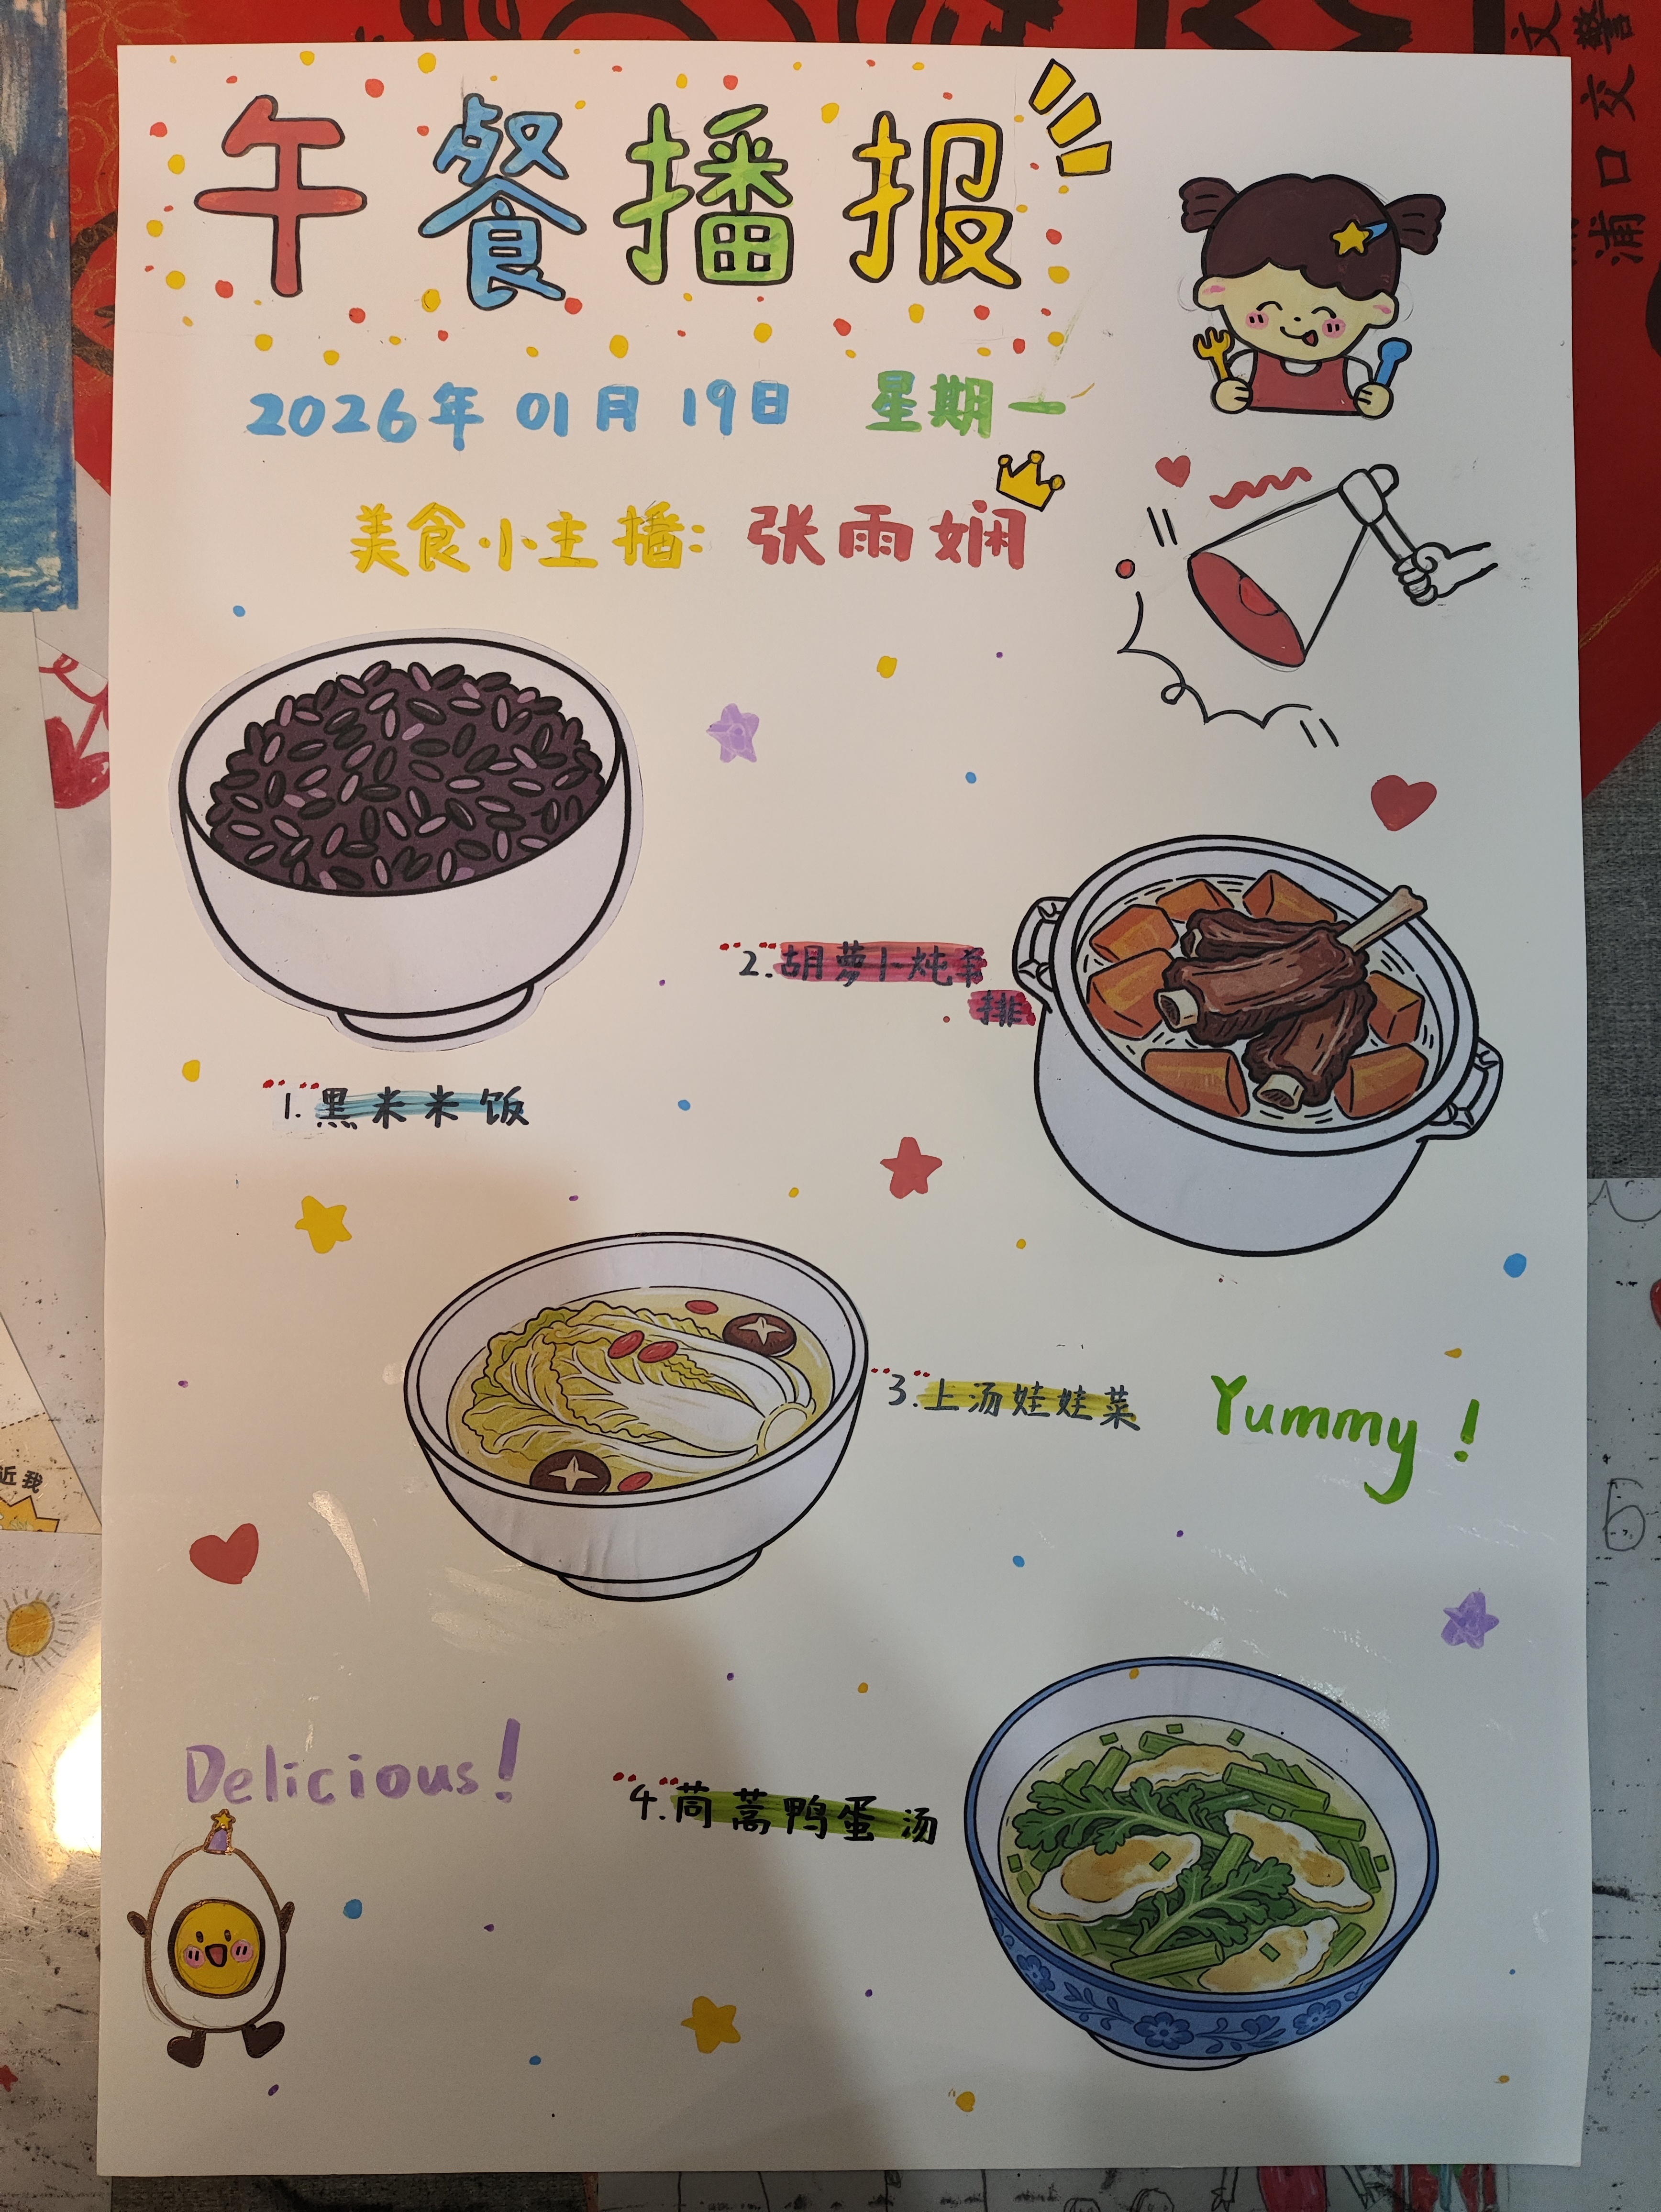 午餐播报
2026年01月19日 星期一
美食小主播: 张雨娴
1.黑米米饭
2.胡萝卜炖茶
排
3.上汤娃娃菜
Yummy!
Delicious!
4.茼蒿鸭蛋汤
近我
交警
浦口交